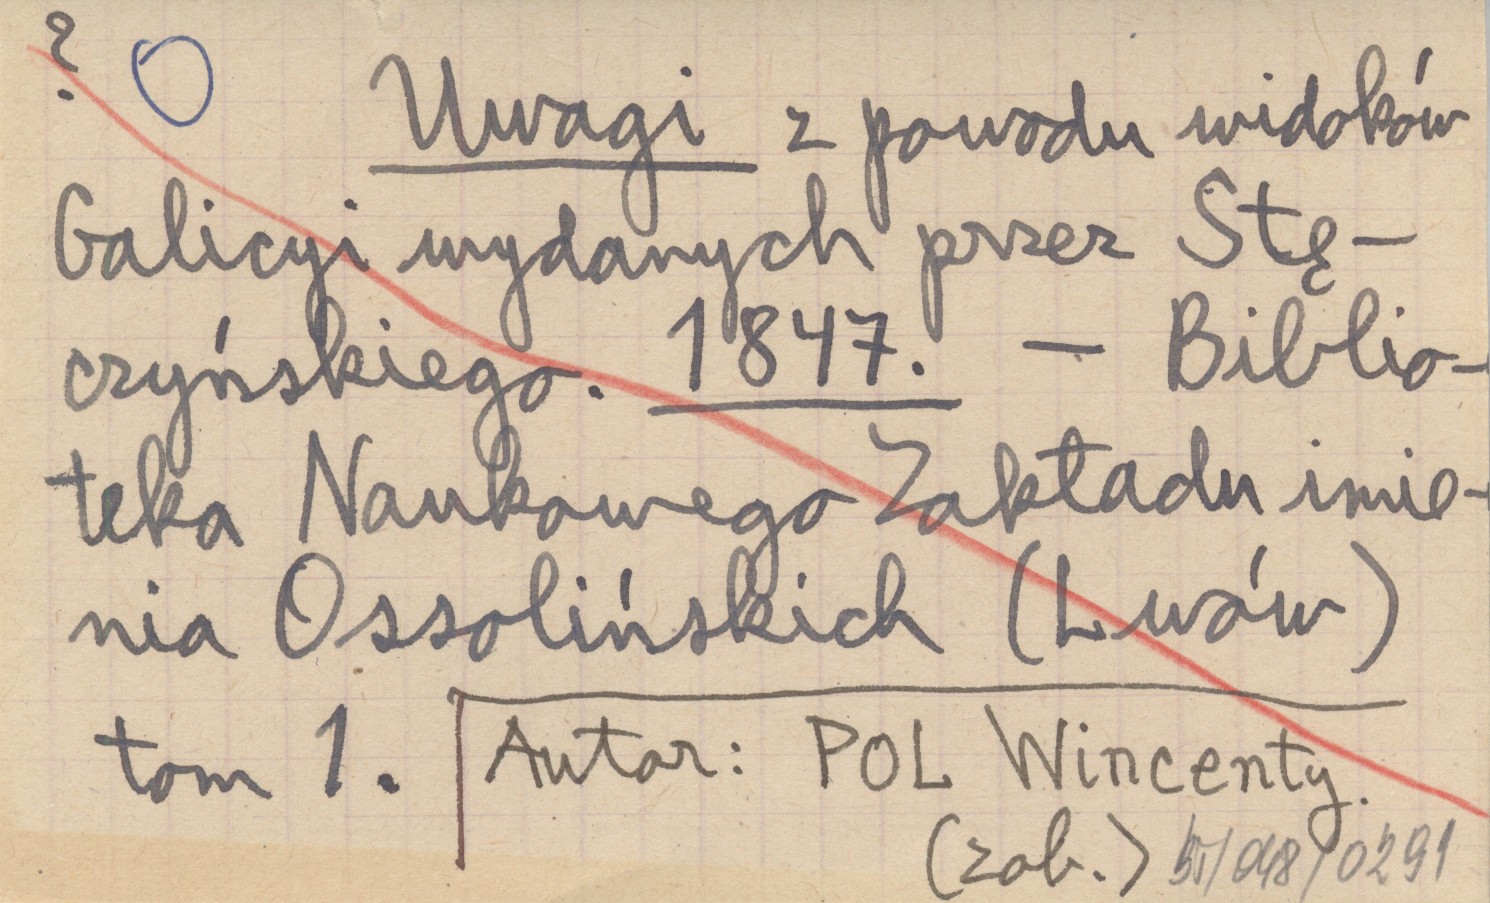 ?
Uwagi z powodu widoków
Galicyi wydanych przez Stę-
czyńskiego. 1847. — Biblio-
teka Naukowego Zakładu imie-
nia Ossolińskich (Lwów)
tom 1. Autor: POL Wincenty.
(zob.) /048/0291